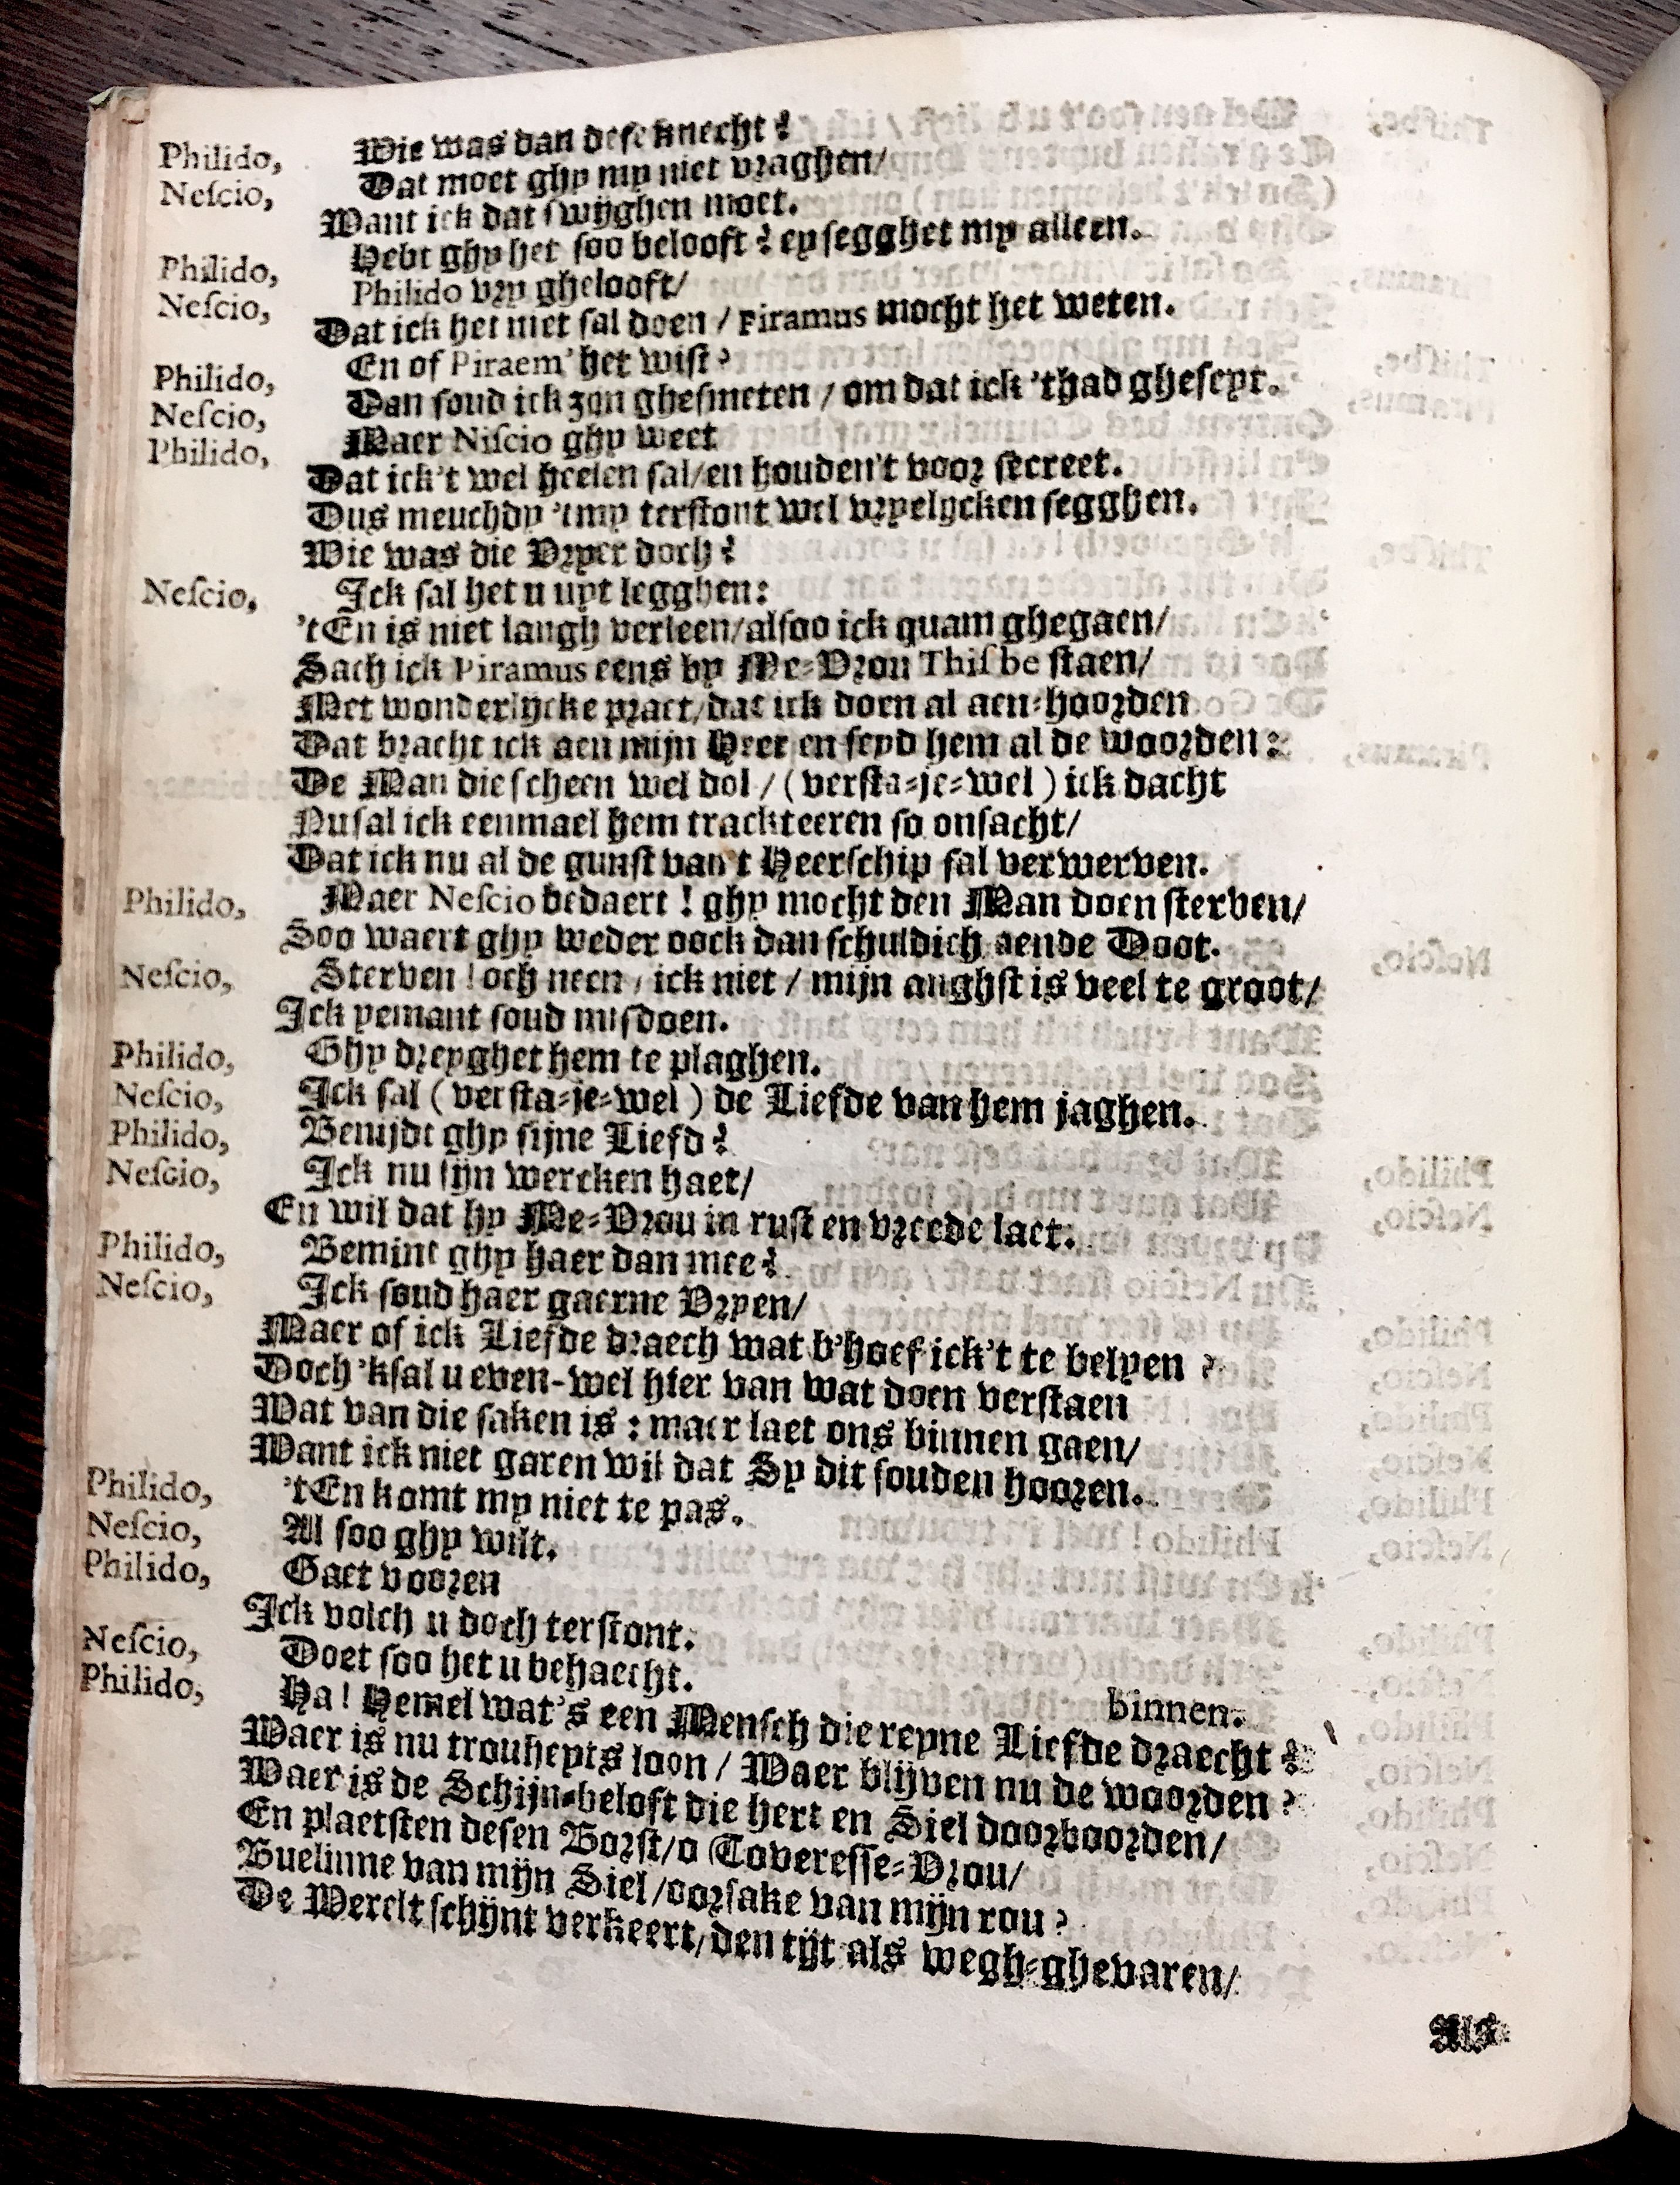 Philido, Wie was dan dese knecht?
Nescio, Dat moet ghy my niet vraghen/
Want ick dat swijghen moet.
Philido, Hebt ghy het soo belooft? ey segghet my alleen.
Nescio, Philido vry ghelooft/
Dat ick het niet sal doen / Piramus mocht het weten.
Philido, En of Piraem' het wist?
Nescio, Dan soud ick zijn ghesmeten / om dat ick 't had gheseyt.
Philido, Maer Niscio ghy weet
Dat ick't wel heelen sal/en houden't voor secreet.
Dus meuchdy 'tmy terstont wel vryelijcken segghen.
Wie was die Vryer doch?
Nescio, Ick sal het u uyt legghen:
't En is niet langh verleen/alsoo ick quam ghegaen/
Sach ick Piramus eens by Me-Vrou Thisbe staen/
Met wonderlijcke praet/dat ick doen al aen-hoorden
Dat bracht ick aen mijn Heer en seyd hem al de woorden:
De Man die scheen wel dol / (versta-je-wel) ick dacht
Nu sal ick eenmael hem trackteeren so onsacht/
Dat ick nu al de gunst van 't Heerschip sal verwerven.
Philido, Maer Nescio bedaert! ghy mocht den Man doen sterven/
Soo waert ghy weder oock dan schuldich aende Doot.
Nescio, Sterven! och neen / ick niet / mijn anghst is veel te groot/
Ick yemant soud misdoen.
Philido, Ghy dreyghet hem te plaghen.
Nescio, Ick sal (versta-je-wel) de Liefde van hem jaghen.
Philido, Benijdt ghy sijne Liefd?
Nescio, Ick nu sijn wercken haet/
En wil dat hy Me-Vrou in rust en vreede laet.
Philido, Bemint ghy haer dan mee?
Nescio, Ick soud haer gaerne Vryen/
Maer of ick Liefde draech wat b'hoef ick't te belyen?
Doch 'ksal u even-wel hier van wat doen verstaen
Wat van die saken is: maer laet ons binnen gaen/
Want ick niet garen wil dat Sy dit souden hooren.
Philido, 't En komt my niet te pas.
Nescio, Al soo ghy wilt.
Philido, Gaet vooren
Ick volch u doch terstont.
Nescio, Doet soo het u behaecht. binnen.
Philido, Ha! Hemel wat's een Mensch die reyne Liefde draecht?
Waer is nu trouheyts loon / Waer blijven nu de woorden?
Waer is de Schijn-beloft die hert en Siel doorboorden/
En plaetsten desen Borst/o Toveresse-Vrou/
Buelinne van mijn Siel/oorsake van mijn rou?
De Werelt schijnt verkeert/den tijt als wegh-ghevaren/
Als